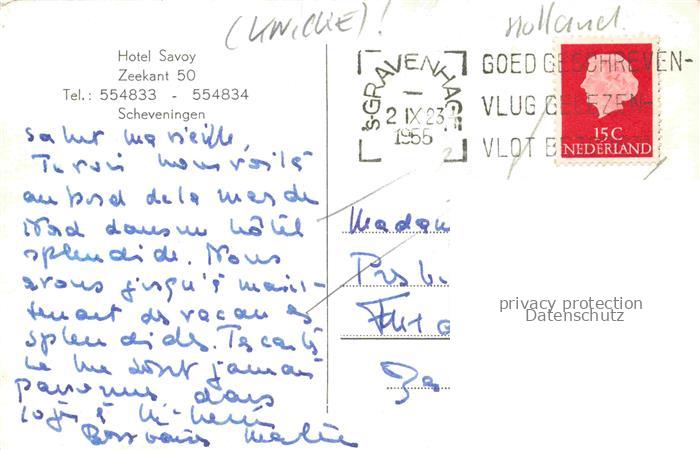 (KNICKE)!
Holland.
Hotel Savoy
Zeekant 50
Tel.: 554833 - 554834
Scheveningen
's-GRAVENHAGE
2 IX 23
1955
GOED GESCHREVEN-
VLUG GELEZEN-
VLOT
15C
NEDERLAND
salut ma vieille,
Tu vois nous voilà
au bord de la mer du
Nord dans un hôtel
splendide. Nous
avons jusqu'à main-
tenant des vacances
splendides. Ta carte
ne me sont jamais
parvenus dans
logis à
Bons baisers
Madam
privacy protection
Datenschutz